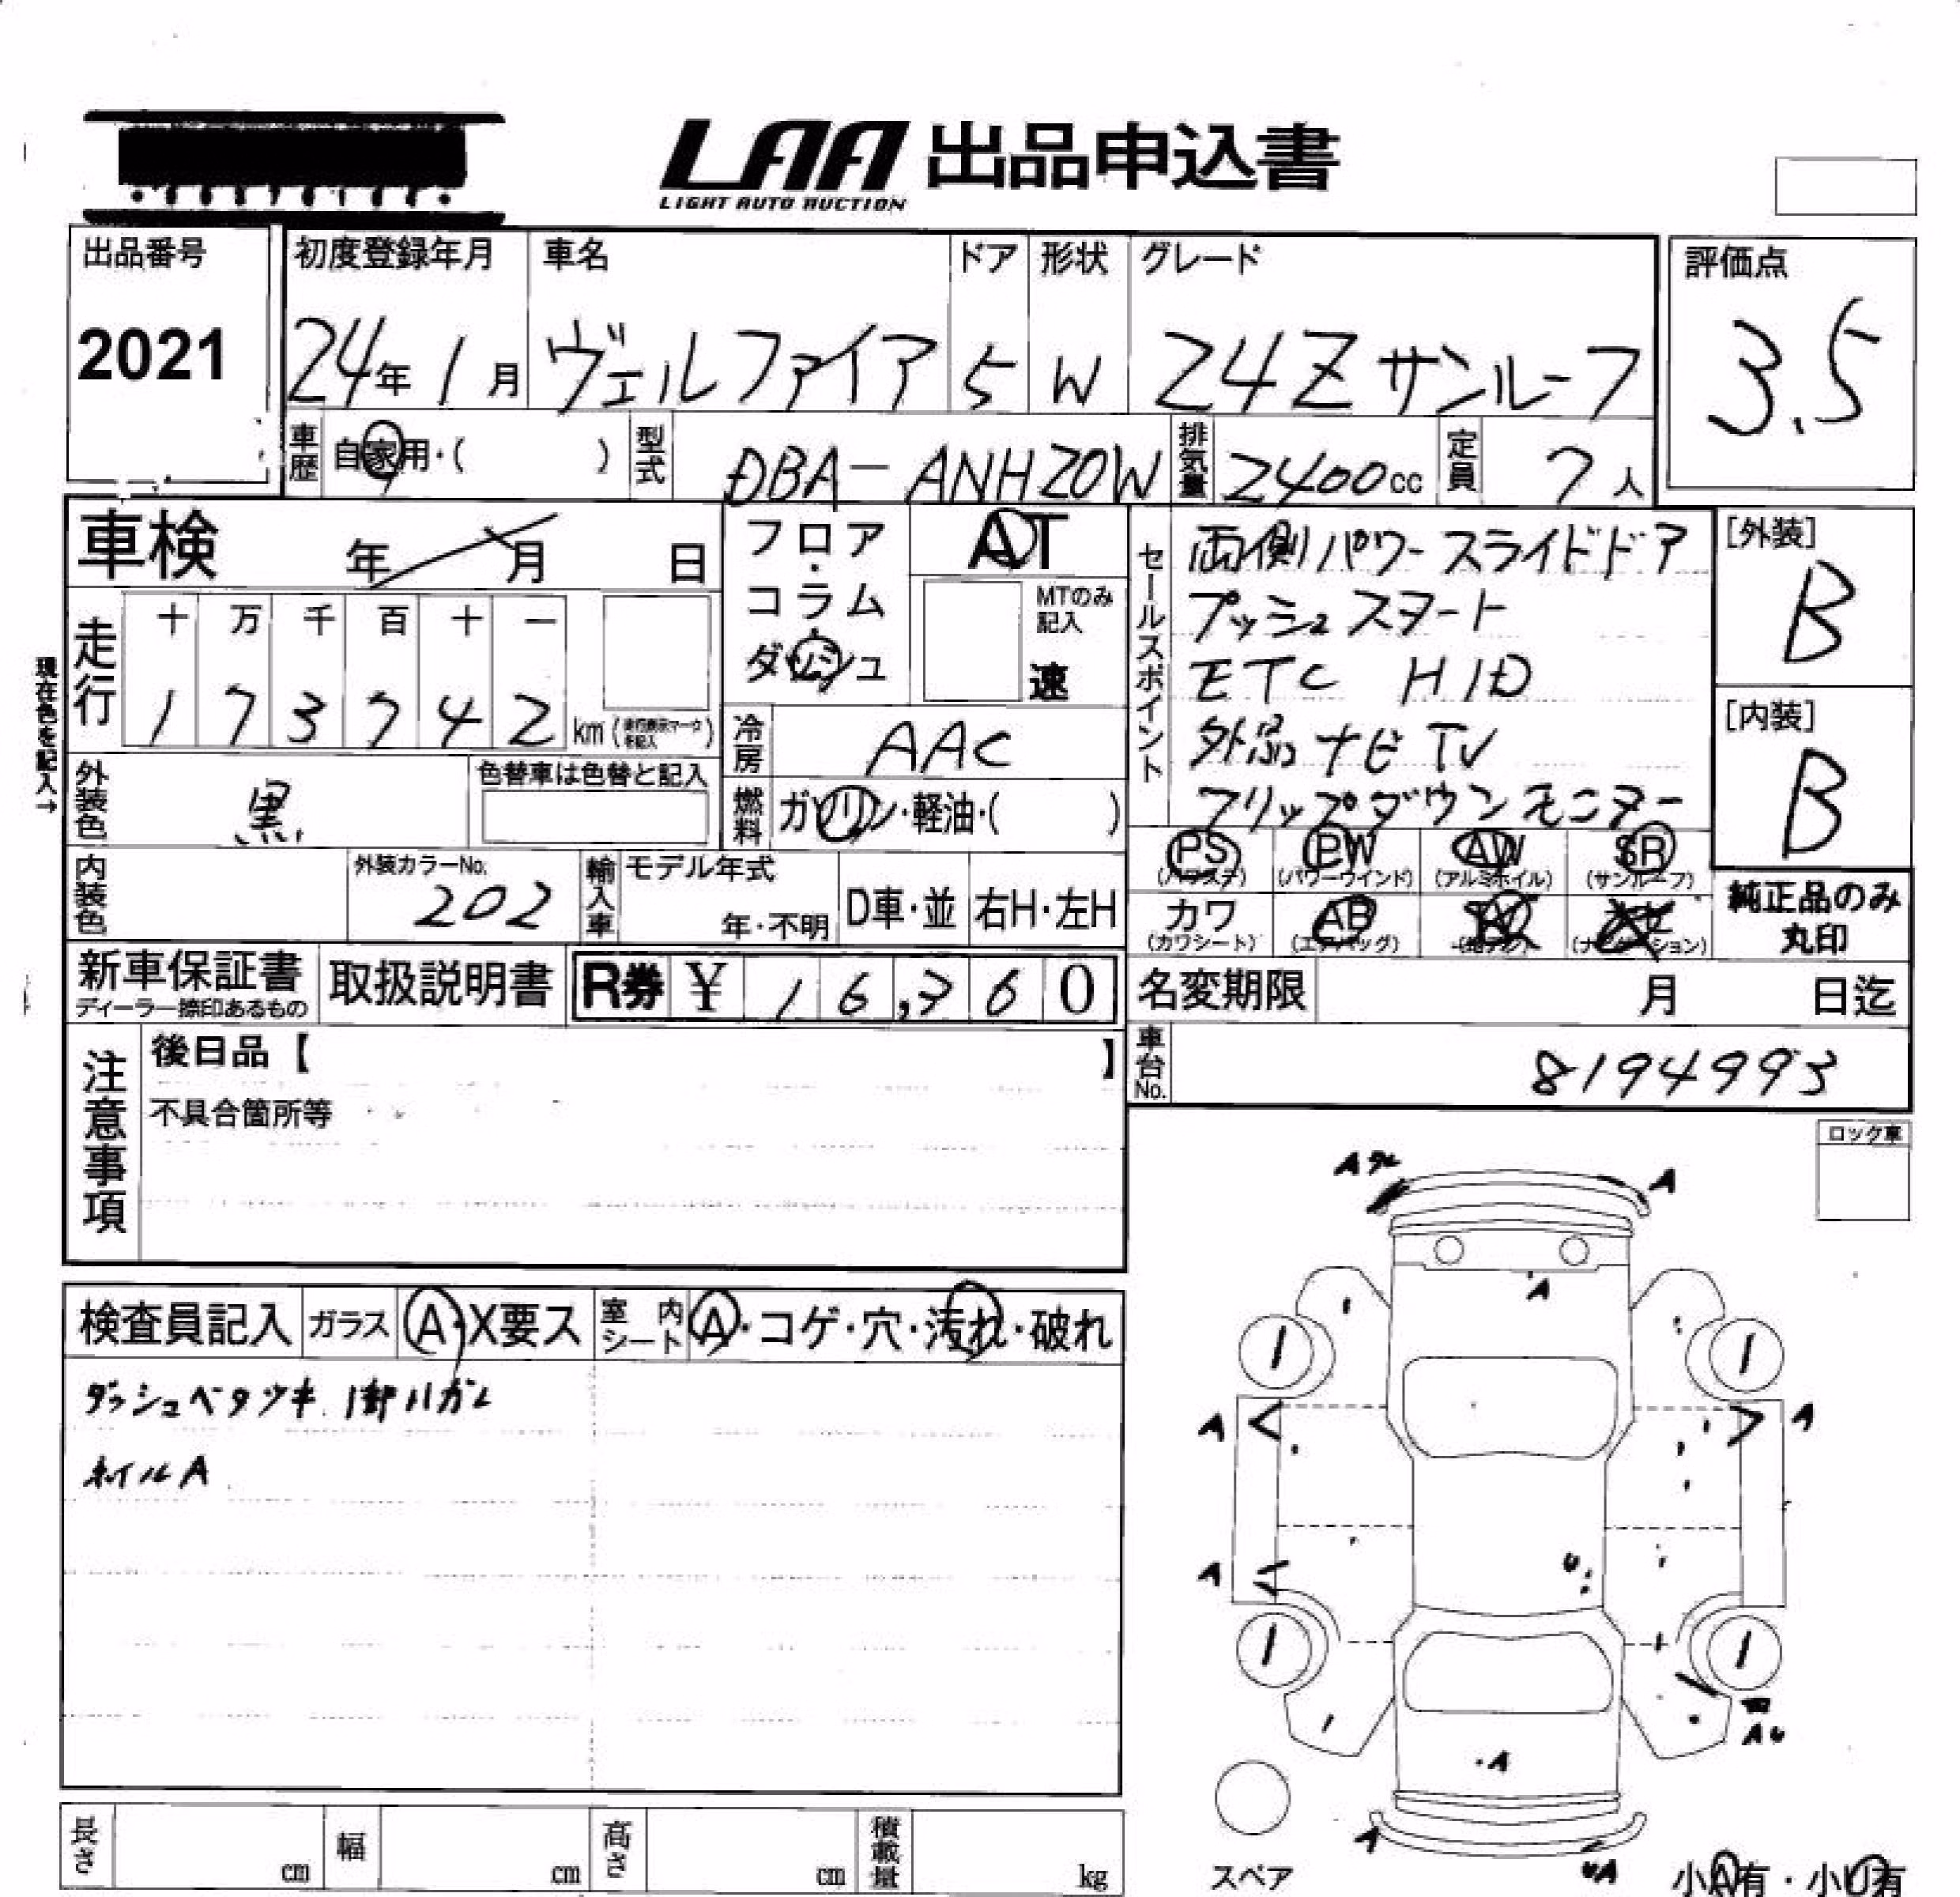 LAA 出品申込書
LIGHT AUTO AUCTION
出品番号
2021
初度登録年月
24年1月
車名
ヴェルファイア
ドア
5
形状
W
グレード
24Z サンルーフ
評価点
3.5
車歴 自家用・( )
型式 DBA-ANH20W
排気量 2400cc
定員 7人
車検 年 月 日
フロア・コラム・ダッシュ
AT
MTのみ記入
速
セールスポイント
両側パワースライドドア
プッシュスタート
ETC HID
外品ナビTV
フリップダウンモニター
[外装]
B
[内装]
B
現在色を記入→
走行
十 万 千 百 十 一
1 7 3 7 4 2 km(走行表示マークを記入)
冷房 AAC
外装色 黒
色替車は色替と記入
燃料 ガソリン・軽油・( )
内装色
外装カラーNo.
202
輸入車 モデル年式
年・不明
D車・並 右H・左H
PS (パワステ)
PW (パワーウインド)
AW (アルミホイル)
SR (サンルーフ)
カワ (カワシート)
AB (エアバッグ)
(ナビゲーション)
純正品のみ
丸印
新車保証書
ディーラー捺印あるもの
取扱説明書
R券 ¥ 16,360
名変期限 月 日迄
車台No. 8194993
注意事項
後日品【 】
不具合箇所等
ロック車
検査員記入
ガラス A・X要ス
室内シート A・コゲ・穴・汚れ・破れ
ダッシュベタツキ
ホイルA
A
A
A
A
A
A
U
A
A
UA
スペア
小A有・小U有
長さ cm
幅 cm
高さ cm
積載量 kg